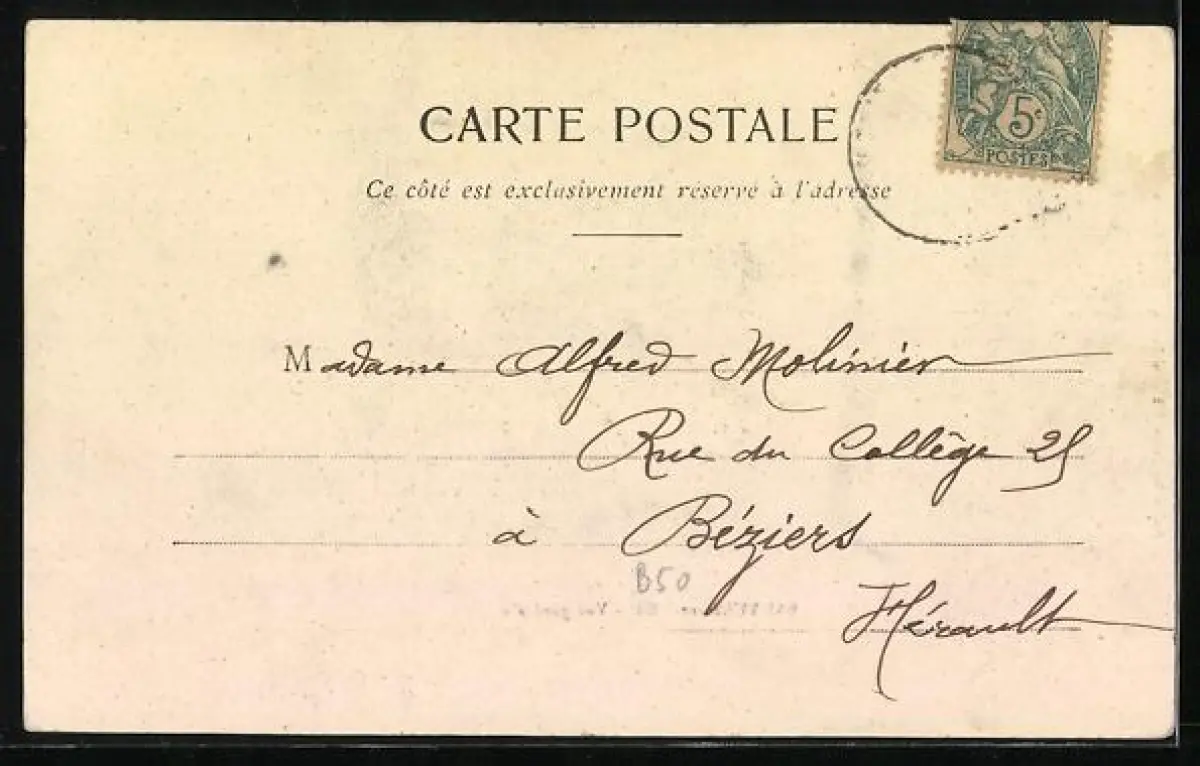 CARTE POSTALE
5c
POSTES
Ce côté est exclusivement réservé à l'adresse
Madame Alfred Molinier
Rue du Collège 25
à Béziers
B50
Hérault